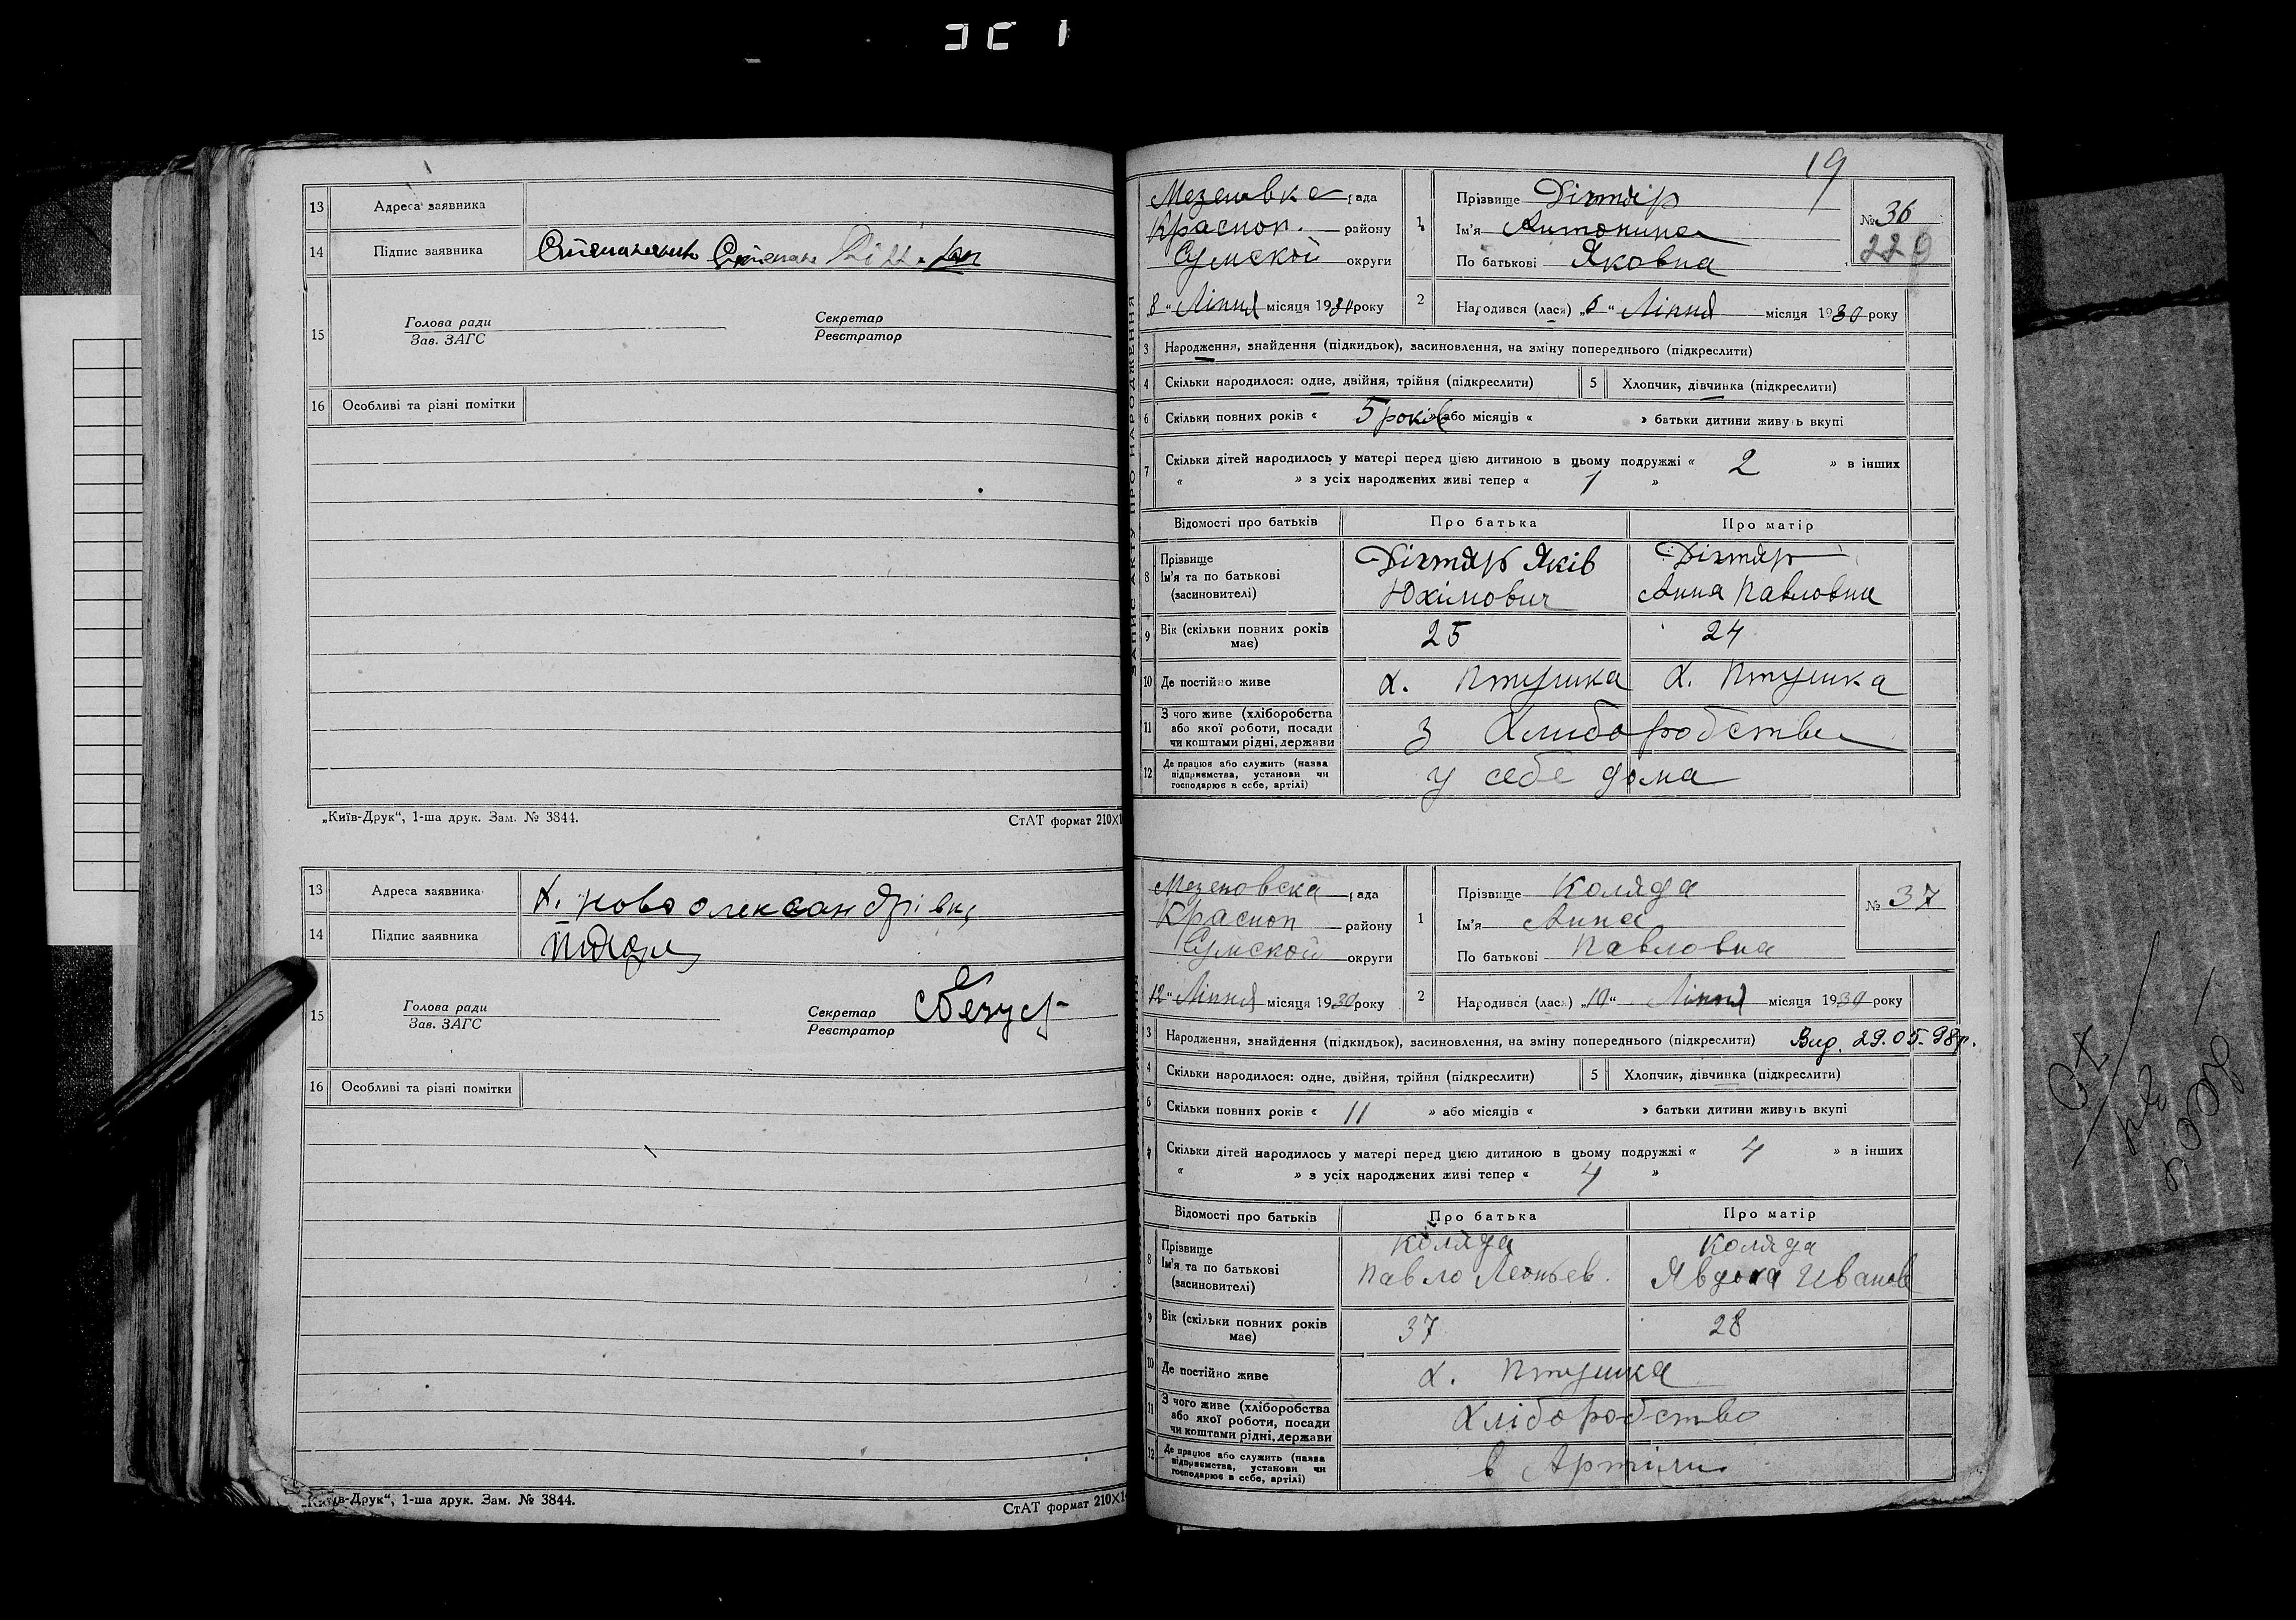 13 Адреса заявника
14 Підпис заявника
15 Голова ради
Зав. ЗАГС
Секретар
Реєстратор
16 Особливі та різні помітки
„Київ-Друк“, 1-ша друк. Зам. № 3844.
СтАТ формат 210×1
13 Адреса заявника х. Новоолександрівка
14 Підпис заявника
15 Голова ради
Зав. ЗАГС
Секретар
Реєстратор
16 Особливі та різні помітки
„Київ-Друк“, 1-ша друк. Зам. № 3844.
СтАТ формат 210×1
19
ЗАПИС АКТУ ПРО НАРОДЖЕННЯ
рада
Красноп. району
Сумской округи
8 “ Ліпня місяця 1930 року
1 Прізвище Дігтяр
Ім'я Антонина
По батькові Яковна
№ 36
229
2 Народився (лася) „6“ Ліпня місяця 1930 року
3 Народження, знайдення (підкидьок), засиновлення, на зміну попереднього (підкреслити)
4 Скільки народилося: одне, двійня, трійня (підкреслити) 5 Хлопчик, дівчинка (підкреслити)
6 Скільки повних років « 5 років » або місяців « » батьки дитини живуть вкупі
7 Скільки дітей народилось у матері перед цією дитиною в цьому подружжі « 2 » в інших
« » з усіх народжених живі тепер « 1 »
Відомості про батьків Про батька Про матір
8 Прізвище
Ім'я та по батькові
(засиновителі)
Дігтяр Яків
Юхімович
Дігтяр
Анна Павловна
9 Вік (скільки повних років
має)
25 24
10 Де постійно живе х. Птушка х. Птушка
11 З чого живе (хліборобства
або якої роботи, посади
чи коштами рідні, держави
з Хлиборобства
12 Де працює або служить (назва
підприємства, установи чи
господарює в себе, артілі)
у себе дома
Мезеновска рада
Краспоп району
Сумской округи
12 “ Ліпня місяця 1930 року
1 Прізвище Коляда
Ім'я Анна
По батькові Павловна
№ 37
2 Народився (лася) „10“ Ліпня місяця 1930 року
3 Народження, знайдення (підкидьок), засиновлення, на зміну попереднього (підкреслити) Вид. 29.05.98р.
4 Скільки народилося: одне, двійня, трійня (підкреслити) 5 Хлопчик, дівчинка (підкреслити)
6 Скільки повних років « 11 » або місяців « » батьки дитини живуть вкупі
Скільки дітей народилось у матері перед цією дитиною в цьому подружжі « 4 » в інших
« » з усіх народжених живі тепер « 4 »
Відомості про батьків Про батька Про матір
8 Прізвище
Ім'я та по батькові
(засиновителі)
Коляда
Павло Леонтьев.
Коляда
Явдоха Иванов
9 Вік (скільки повних років
має)
37 28
10 Де постійно живе х. Птушка
11 З чого живе (хліборобства
або якої роботи, посади
чи коштами рідні, держави
Хліборобство
12 Де працює або служить (назва
підприємства, установи чи
господарює в себе, артілі)
в Артили